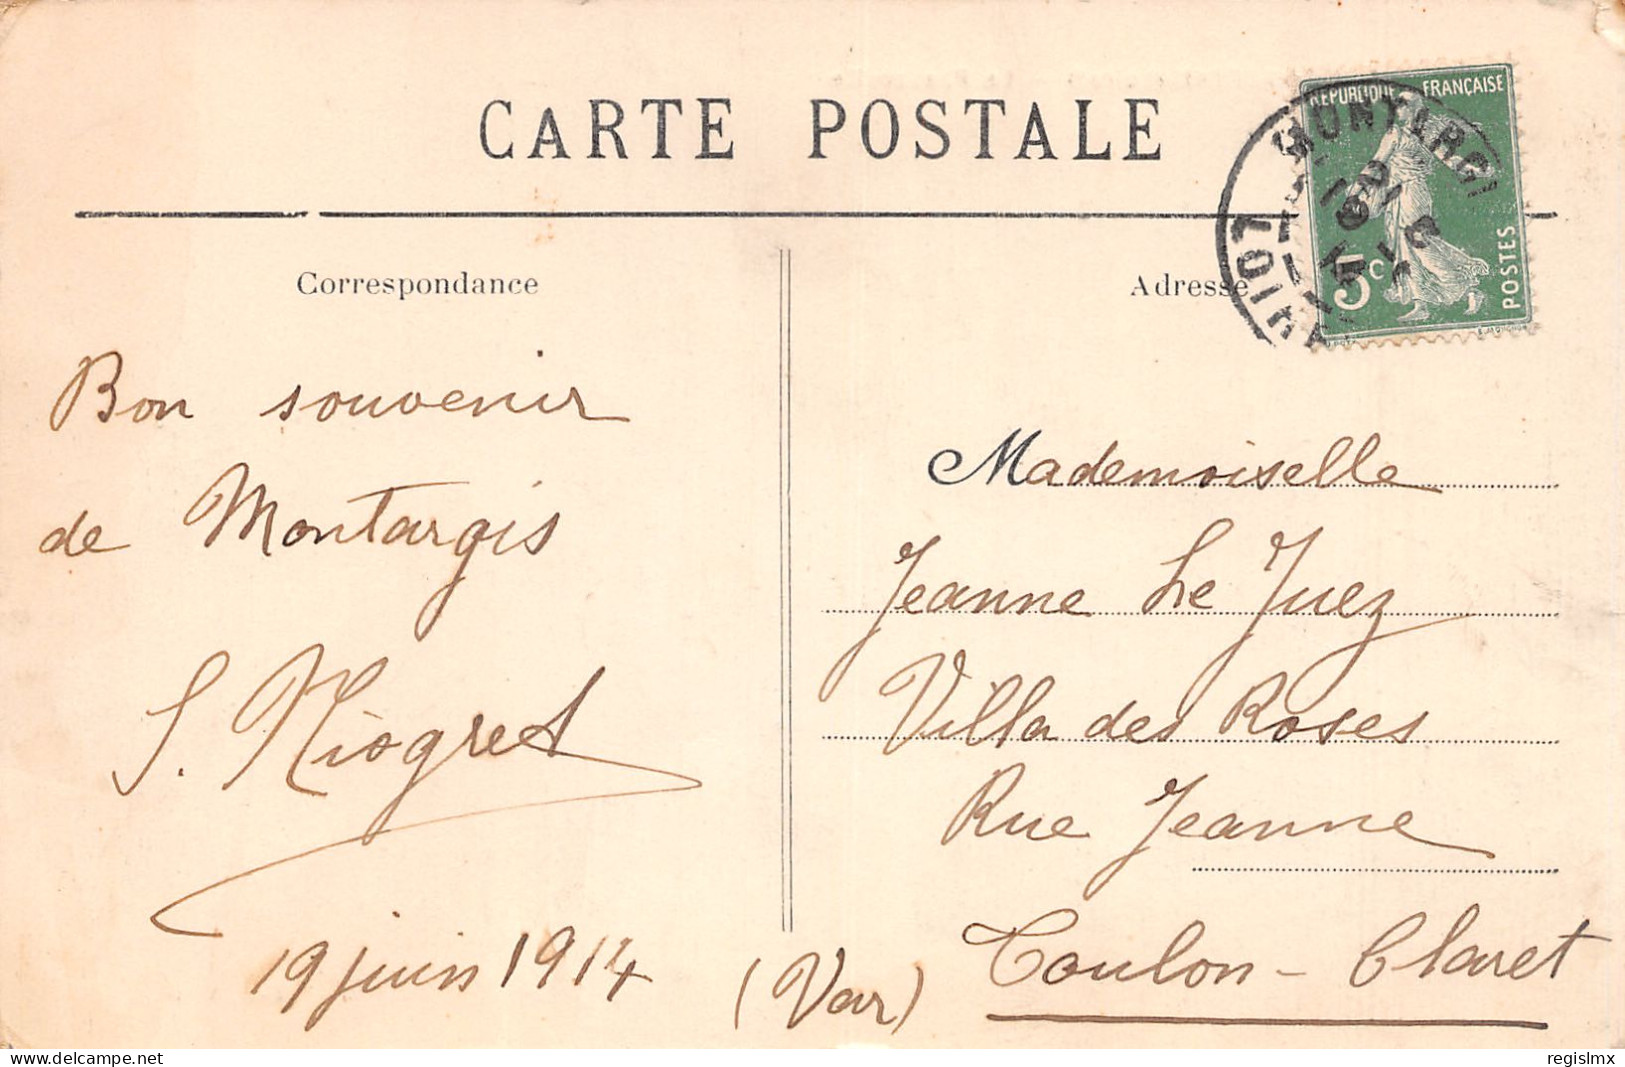 CARTE POSTALE
RÉPUBLIQUE FRANÇAISE
POSTES
5c
Correspondance
Adresse
Bon souvenir
de Montargis
19 juin 1914
Mademoiselle
Jeanne Le Juez
Villa des Roses
Rue Jeanne
Toulon - Claret
(Var)
delcampe.net
regislmx